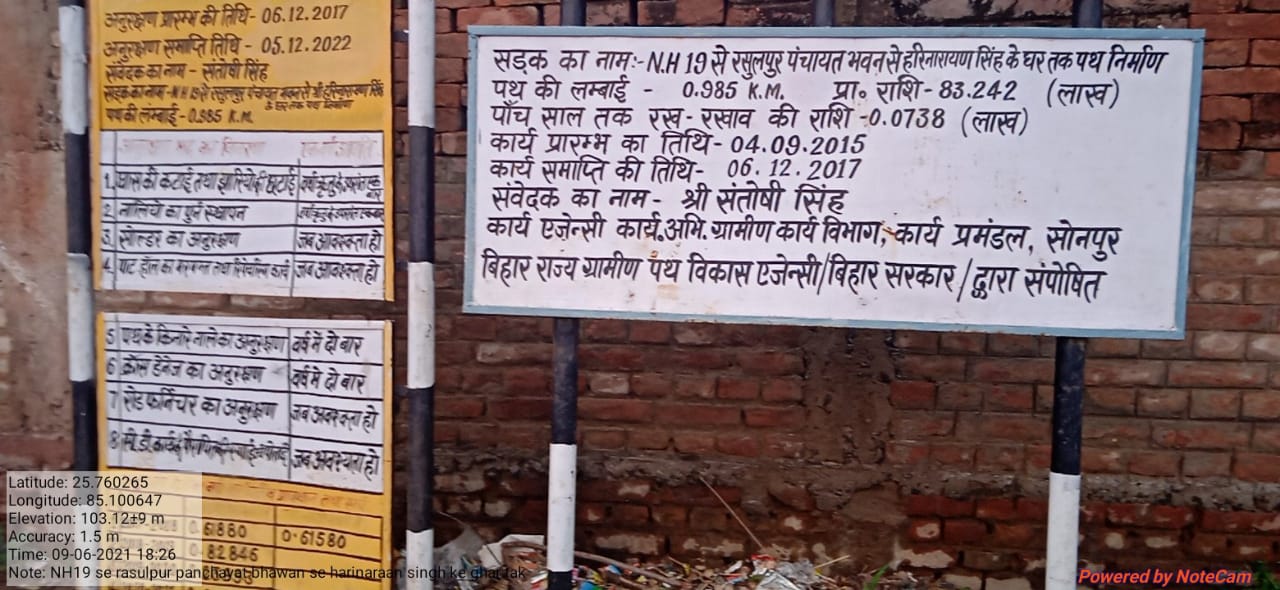 अनुरक्षण प्रारम्भ की तिथि- 06.12.2017
अनुरक्षण समाप्ति तिथि - 05.12.2022
संवेदक का नाम - संतोषी सिंह
सड़क का नाम -N.H 19 से रसुलपुर पंचायत भवन से श्री हरिनारायण सिंह
के घर तक पथ निर्माण
पथ की लम्बाई - 0.985 K.M.
1. घास की कटाई तथा झारियो की छटाई
2. नालियो का पुर्न स्थापन
3. सोल्डर का अनुरक्षण जब आवश्कता हो
4. जब आवश्कता हो
5 पथ के किनारे नाले का अनुरक्षण वर्ष में दो बार
6 क्रॉस ड्रेनेज का अनुरक्षण वर्ष मे दो बार
7 रोड फर्निचर का अनुरक्षण जब अवश्कता हो
8 जब अवश्यता हो
0.61880 0.61580
0.82846
सड़क का नामः- N.H 19 से रसुलपुर पंचायत भवन से हरिनारायण सिंह के घर तक पथ निर्माण
पथ की लम्बाई - 0.985 K.M. प्रा० राशि - 83.242 (लाख)
पाँच साल तक रख - रखाव की राशि -0.0738 (लाख)
कार्य प्रारम्भ का तिथि- 04.09.2015
कार्य समाप्ति की तिथि- 06.12.2017
संवेदक का नाम- श्री संतोषी सिंह
कार्य एजेन्सी कार्य. अभि. ग्रामीण कार्य विभाग, कार्य प्रमंडल, सोनपुर
बिहार राज्य ग्रामीण पथ विकास एजेन्सी/बिहार सरकार/द्वारा संपोषित
Latitude: 25.760265
Longitude: 85.100647
Elevation: 103.12±9 m
Accuracy: 1.5 m
Time: 09-06-2021 18:26
Note: NH19 se rasulpur panchayat bhawan se harinaraan singh ke ghar tak
Powered by NoteCam